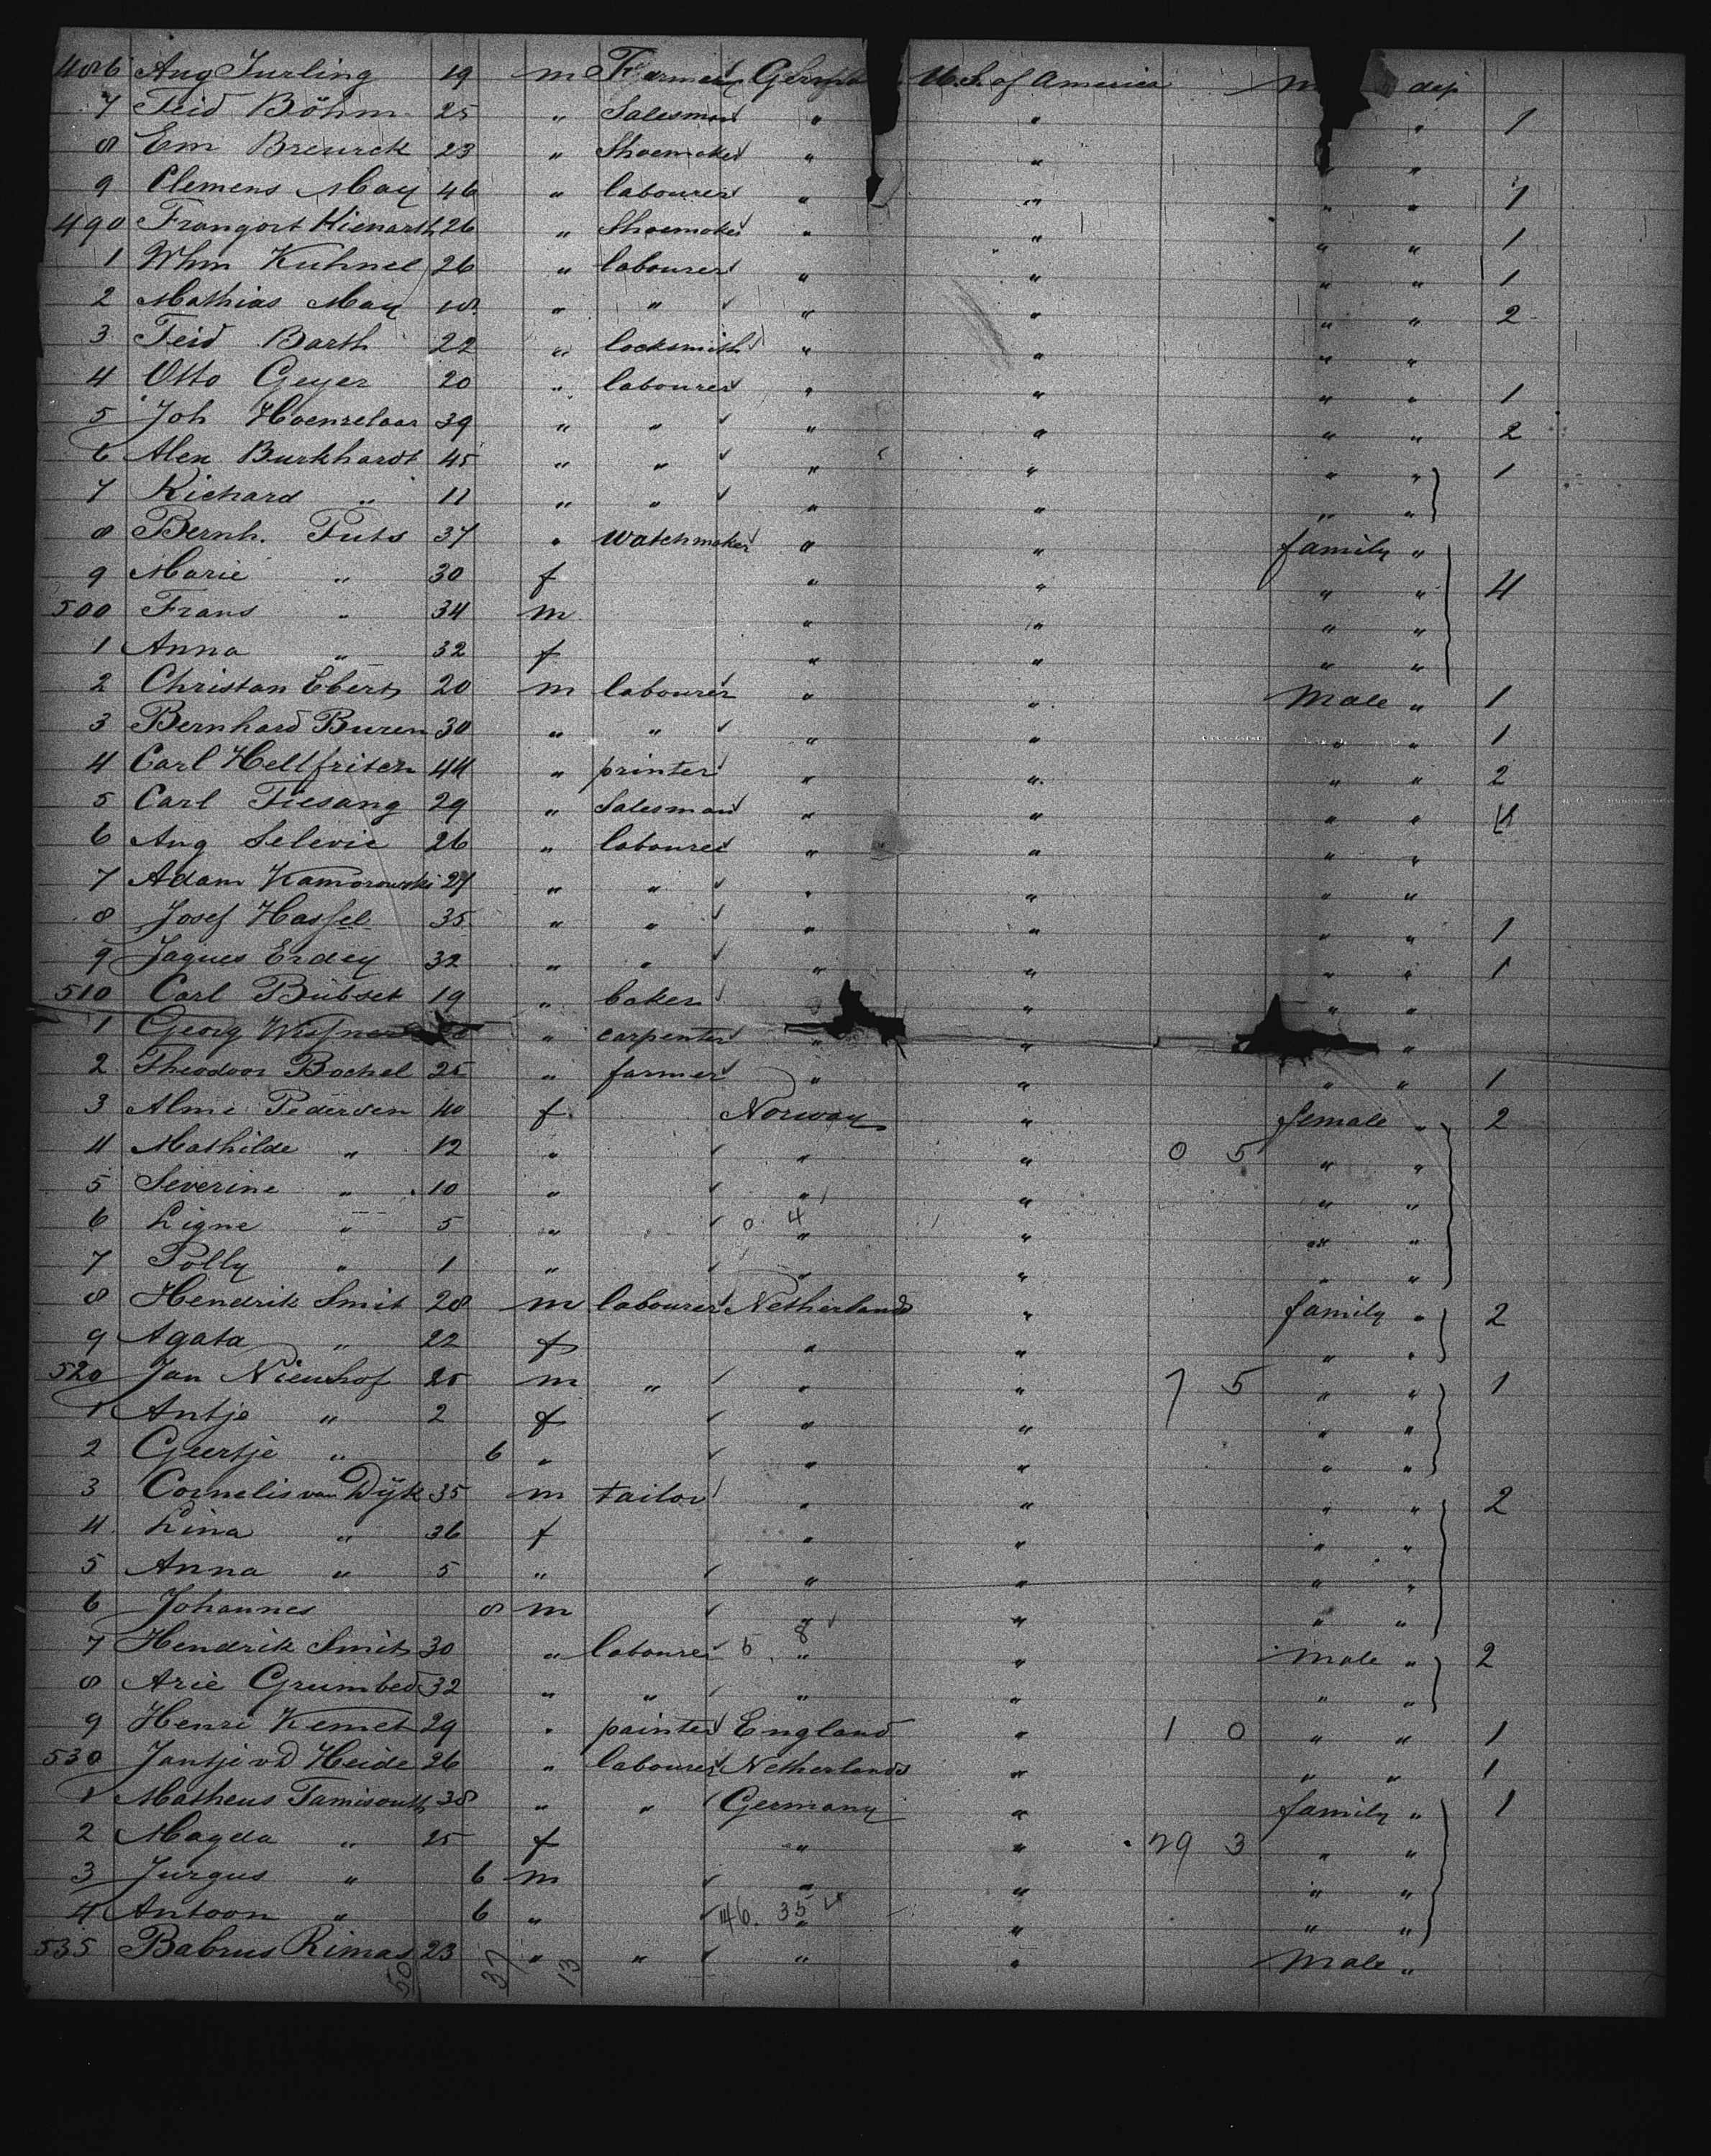 486 Aug Jurling 19 m Farmer U.S. of America dep
7 Feid Böhm 25 " Salesman " " " 1
8 Em Breurck 23 " Shoemaker " " " "
9 Clemens May 46 " labourer " " " " 1
490 Frangort Kienarth 26 " Shoemaker " " " " 1
1 Whm Kuhnel 26 " labourer " " " " 1
2 Mathias May 18 " " " " " " 2
3 Feid Barth 22 " locksmith " " " "
4 Otto Geyer 20 " labourer " " " " 1
5 Joh Hoenselaar 39 " " " " " " 2
6 Alex Burkhardt 45 " " " " " " 1
7 Richard " 11 " " " " " "
8 Bernh. Puts 37 " Watchmaker " " family "
9 Marie " 30 f " " " " 4
500 Frans " 34 m " " " "
1 Anna " 32 f " " " "
2 Christan Ebert 20 m labourer " " Male " 1
3 Bernhard Buren 30 " " " " " " 1
4 Carl Hellfritch 44 " printer " " " " 2
5 Carl Tiesang 29 " Salesman " " " "
6 Aug Selevic 26 " labourer " " " "
7 Adam Kamorowski 27 " " " " " "
8 Josef Hassel 35 " " " " " " 1
9 Jaques Erdey 32 " " " " " " 1
510 Carl Bübset 19 " baker " " "
1 Georg " carpenter " " "
2 Theodoor Bochel 25 " farmer " " " " 1
3 Alme Pedersen 40 f. Norway " female " 2
4 Mathilde " 12 " " " 0 5 " "
5 Severine " 10 " " " " "
6 Ligne " 5 " 0 4 " " " "
7 Polly " 1 " " " " "
8 Hendrik Smit 28 m labourer Netherlands " family " 2
9 Agata " 22 f " " " "
520 Jan Nieuwhof 25 m " " " 7 5 " " 1
1 Antje " 2 f " " " "
2 Geertje " 6 " " " " "
3 Cornelis van Dÿk 35 m tailor " " " " 2
4 Lina " 36 f " " " "
5 Anna " 5 " " " " "
6 Johannes 8 m " " " "
7 Hendrik Smit 30 " labourer 5 8 " " Male " 2
8 Arie Grumbed 32 " " " " " "
9 Henri Kemet 29 " painter England " 1 0 " " 1
530 Jantje vd Heide 26 " labourer Netherlands " " " 1
1 Matheus Tamisouth 38 " " Germany " family " 1
2 Magda " 25 f " " 29 3 " "
3 Jurgus " 6 m " " " "
4 Antoon " 6 " 46. 35 " " " "
535 Babrus Rimas 23 " " " " Male "
50 37 13